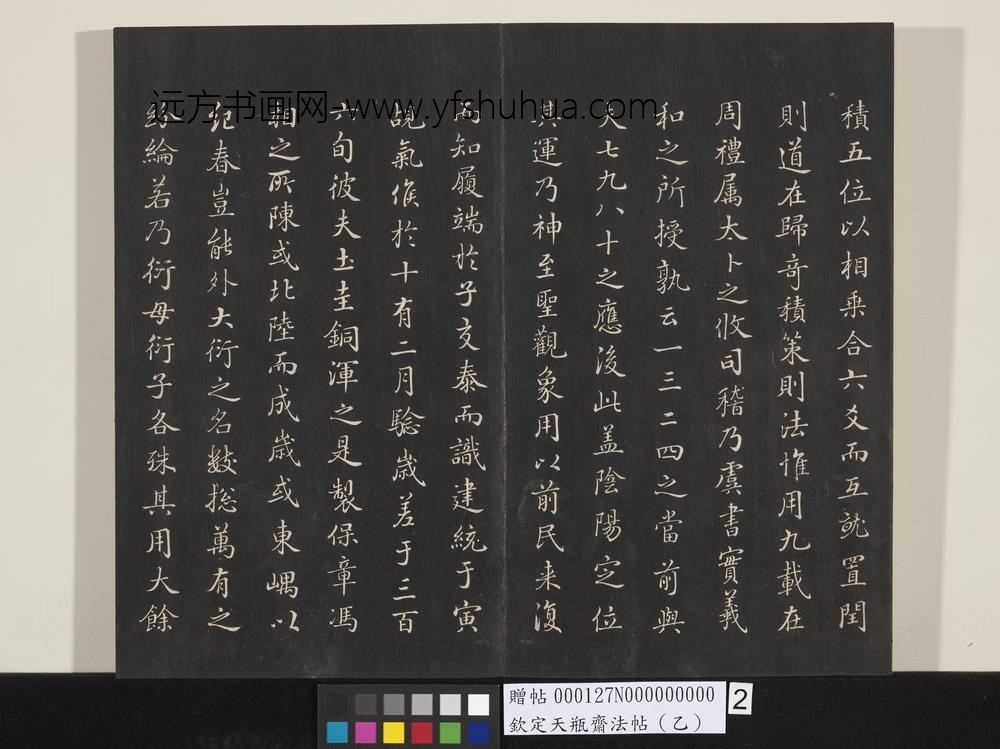 積五位以相乘合六爻而互就置閏
則道在歸奇積策則法惟用九載在
周禮属太卜之收司稽乃虞書實羲
和之所授孰云一三二四之當前與
夫七九八十之應後此盖陰陽定位
其運乃神至聖觀象用以前民来復
而知履端於子交泰而識建統于寅
説氣候於十有二月驗歳差于三百
六旬彼夫土圭銅渾之是製保章馮
相之所陳或北陸而成歳或東嵎以
紀春豈能外大衍之名數揔萬有之
絲綸若乃衍母衍子各殊其用大餘
远方书画网-www.yfshuhua.com
贈帖 000127N000000000
欽定天瓶齋法帖（乙）
2